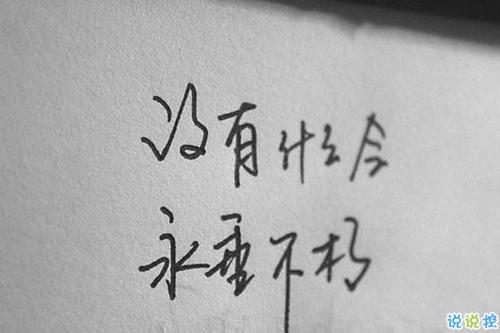 没有什么会
永垂不朽
说说控